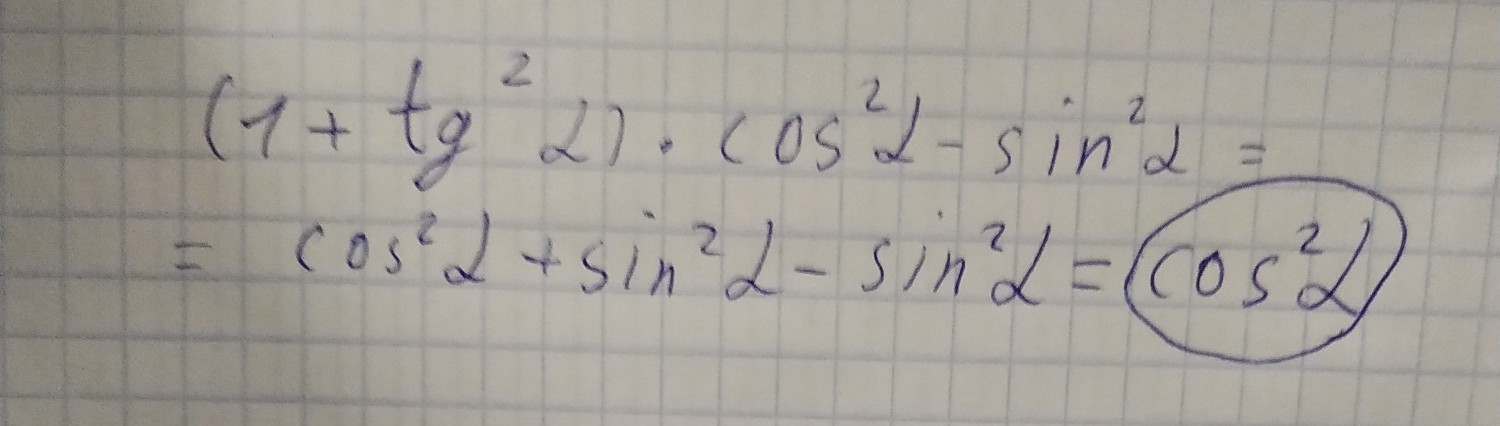 (1 + tg² α) · cos² α - sin² α =
= cos² α + sin² α - sin² α = cos² α